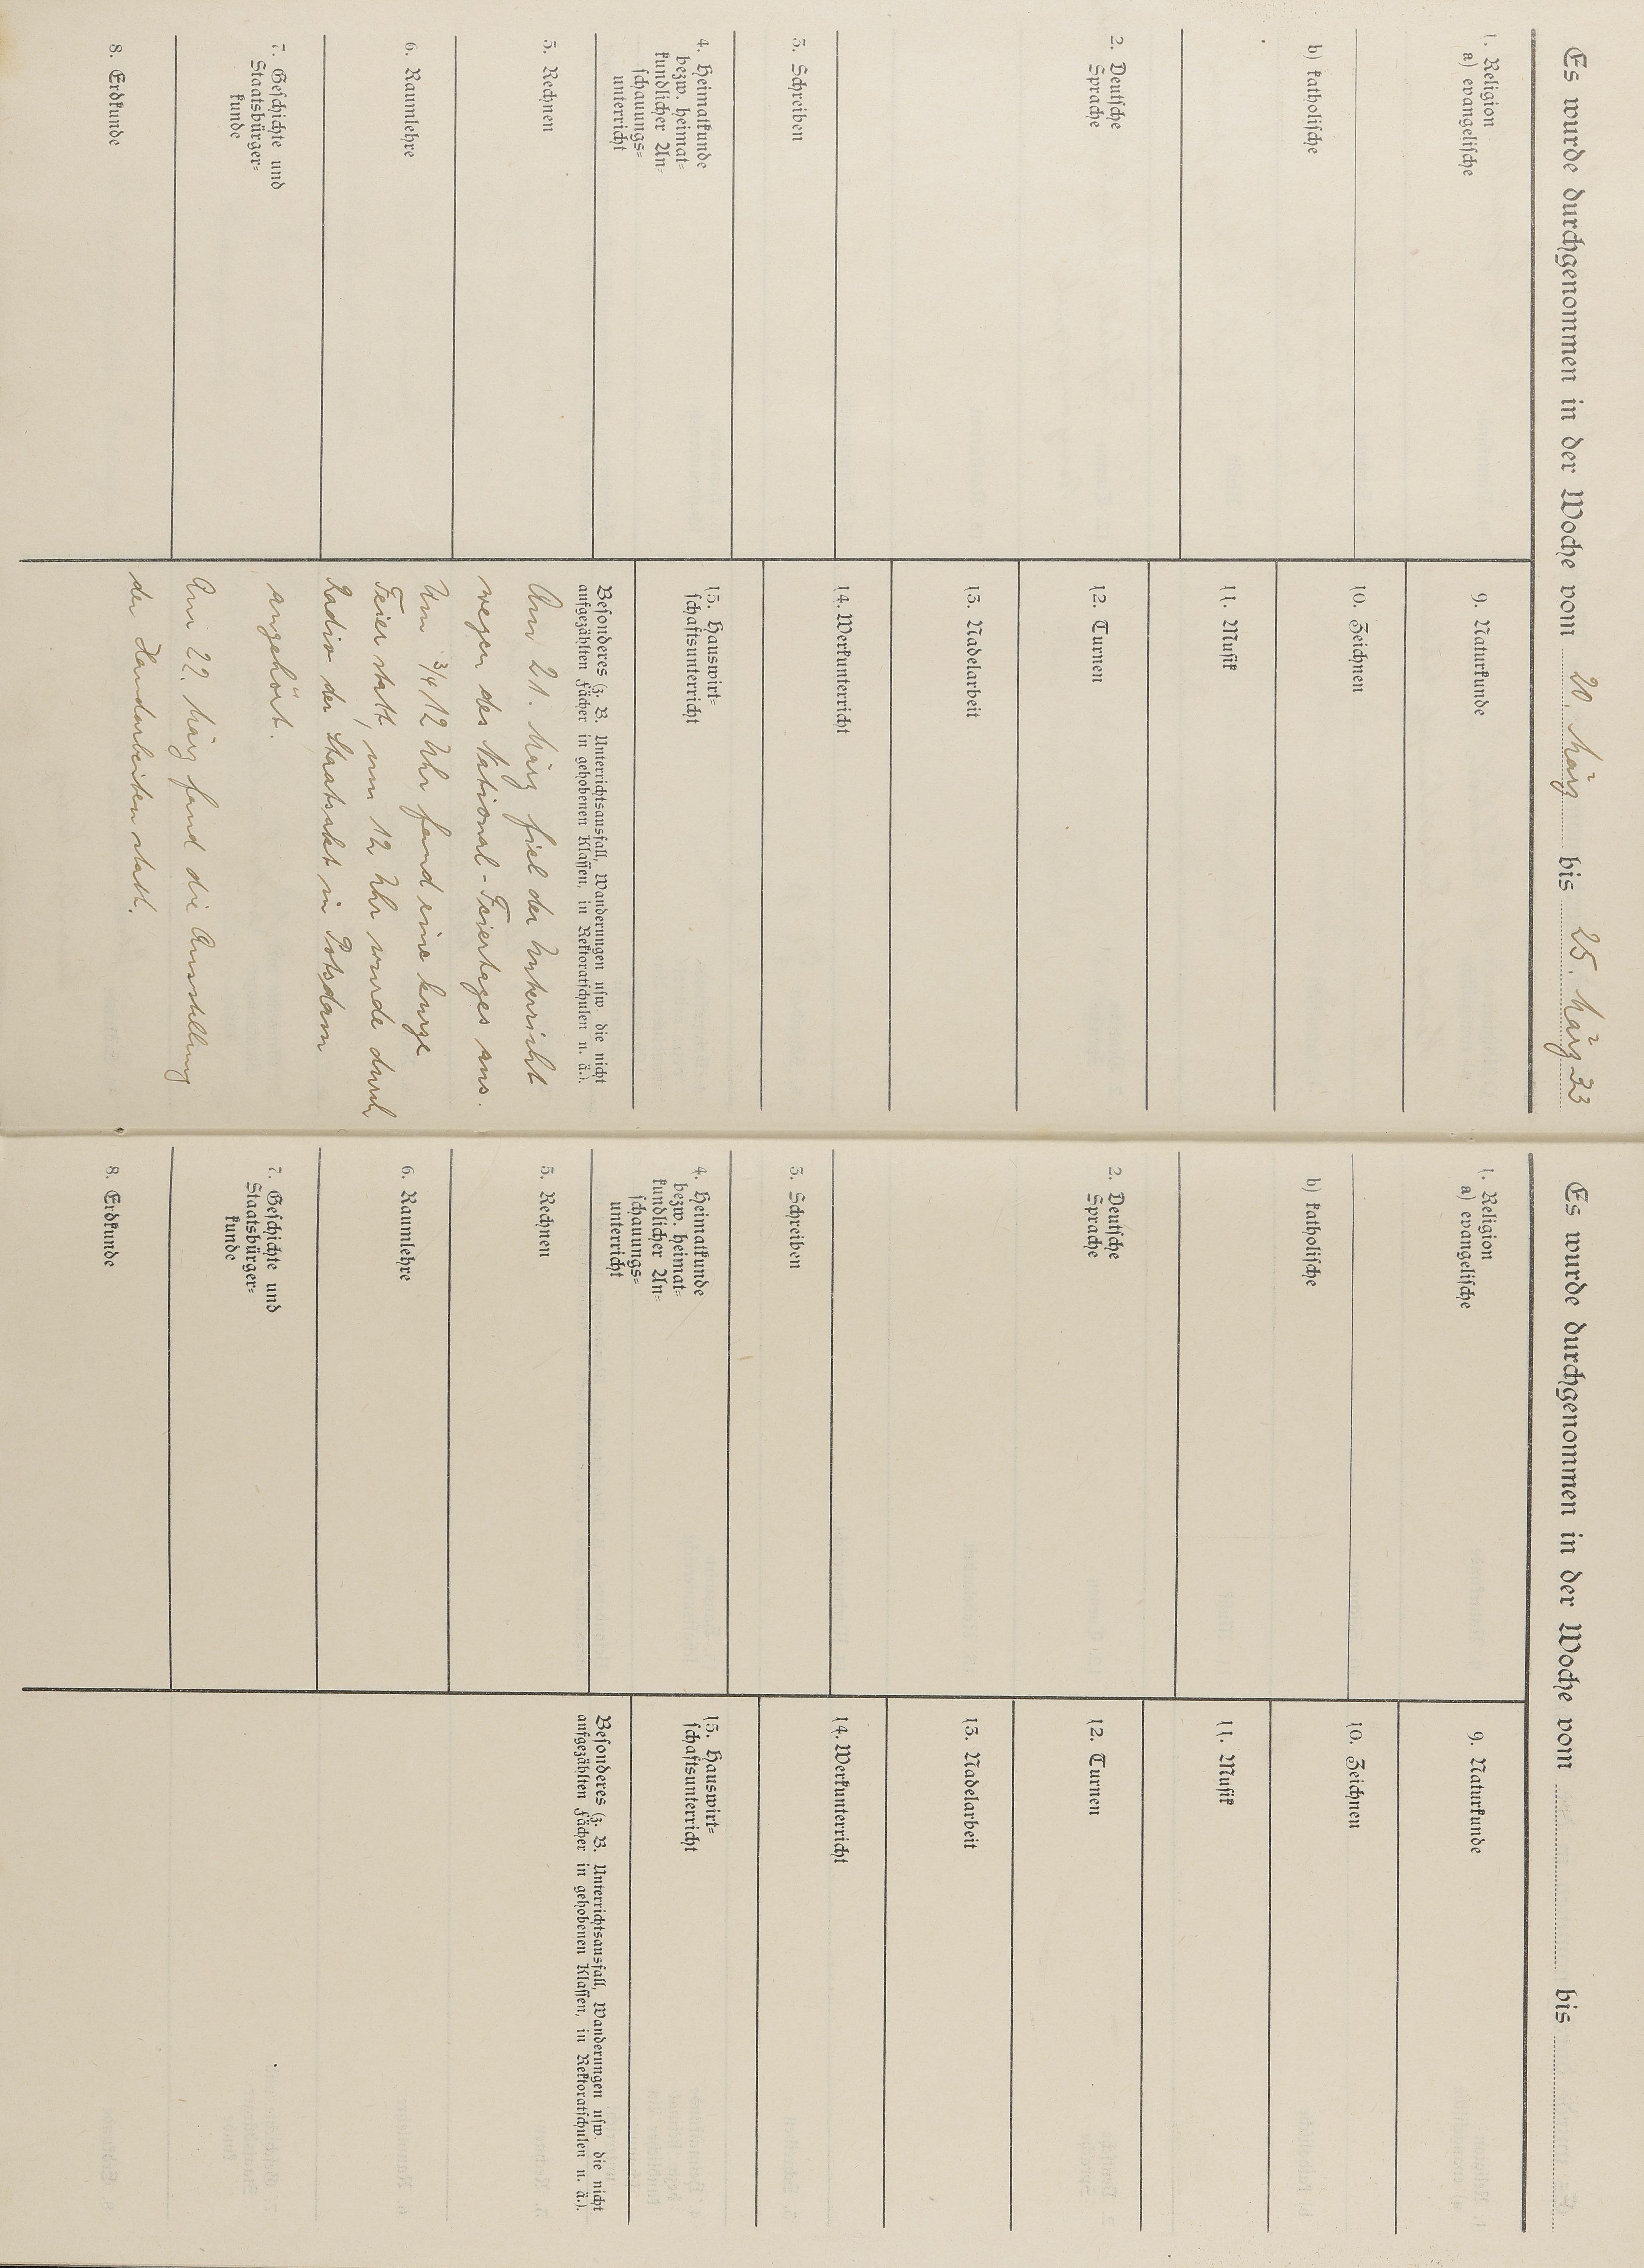 Es wurde durchgenommen in der Woche vom 20. März bis 25. März 33
1. Religion
a) evangelische
b) katholische
2. Deutsche
Sprache
3. Schreiben
4. Heimatkunde
bezw. heimat-
kundlicher An-
schauungs-
unterricht
5. Rechnen
6. Raumlehre
7. Geschichte und
Staatsbürger-
kunde
8. Erdkunde
9. Naturkunde
10. Zeichnen
11. Musik
12. Turnen
13. Nadelarbeit
14. Werkunterricht
15. Hauswirt-
schaftsunterricht
Besonderes (z. B. Unterrichtsausfall, Wanderungen usw. die nicht
aufgezählten Fächer in gehobenen Klassen, in Rektoratschulen u. ä.).
Am 21. März fiel der Unterricht
wegen des National-Feiertages aus.
Um 3/4 12 Uhr fand eine kurze
Feier statt, um 12 Uhr wurde durch
Radio der Staatsakt in Potsdam
angehört.
Am 22. März fand die Ausstellung
der Handarbeiten statt.
Es wurde durchgenommen in der Woche vom bis
1. Religion
a) evangelische
b) katholische
2. Deutsche
Sprache
3. Schreiben
4. Heimatkunde
bezw. heimat-
kundlicher An-
schauungs-
unterricht
5. Rechnen
6. Raumlehre
7. Geschichte und
Staatsbürger-
kunde
8. Erdkunde
9. Naturkunde
10. Zeichnen
11. Musik
12. Turnen
13. Nadelarbeit
14. Werkunterricht
15. Hauswirt-
schaftsunterricht
Besonderes (z. B. Unterrichtsausfall, Wanderungen usw. die nicht
aufgezählten Fächer in gehobenen Klassen, in Rektoratschulen u. ä.).